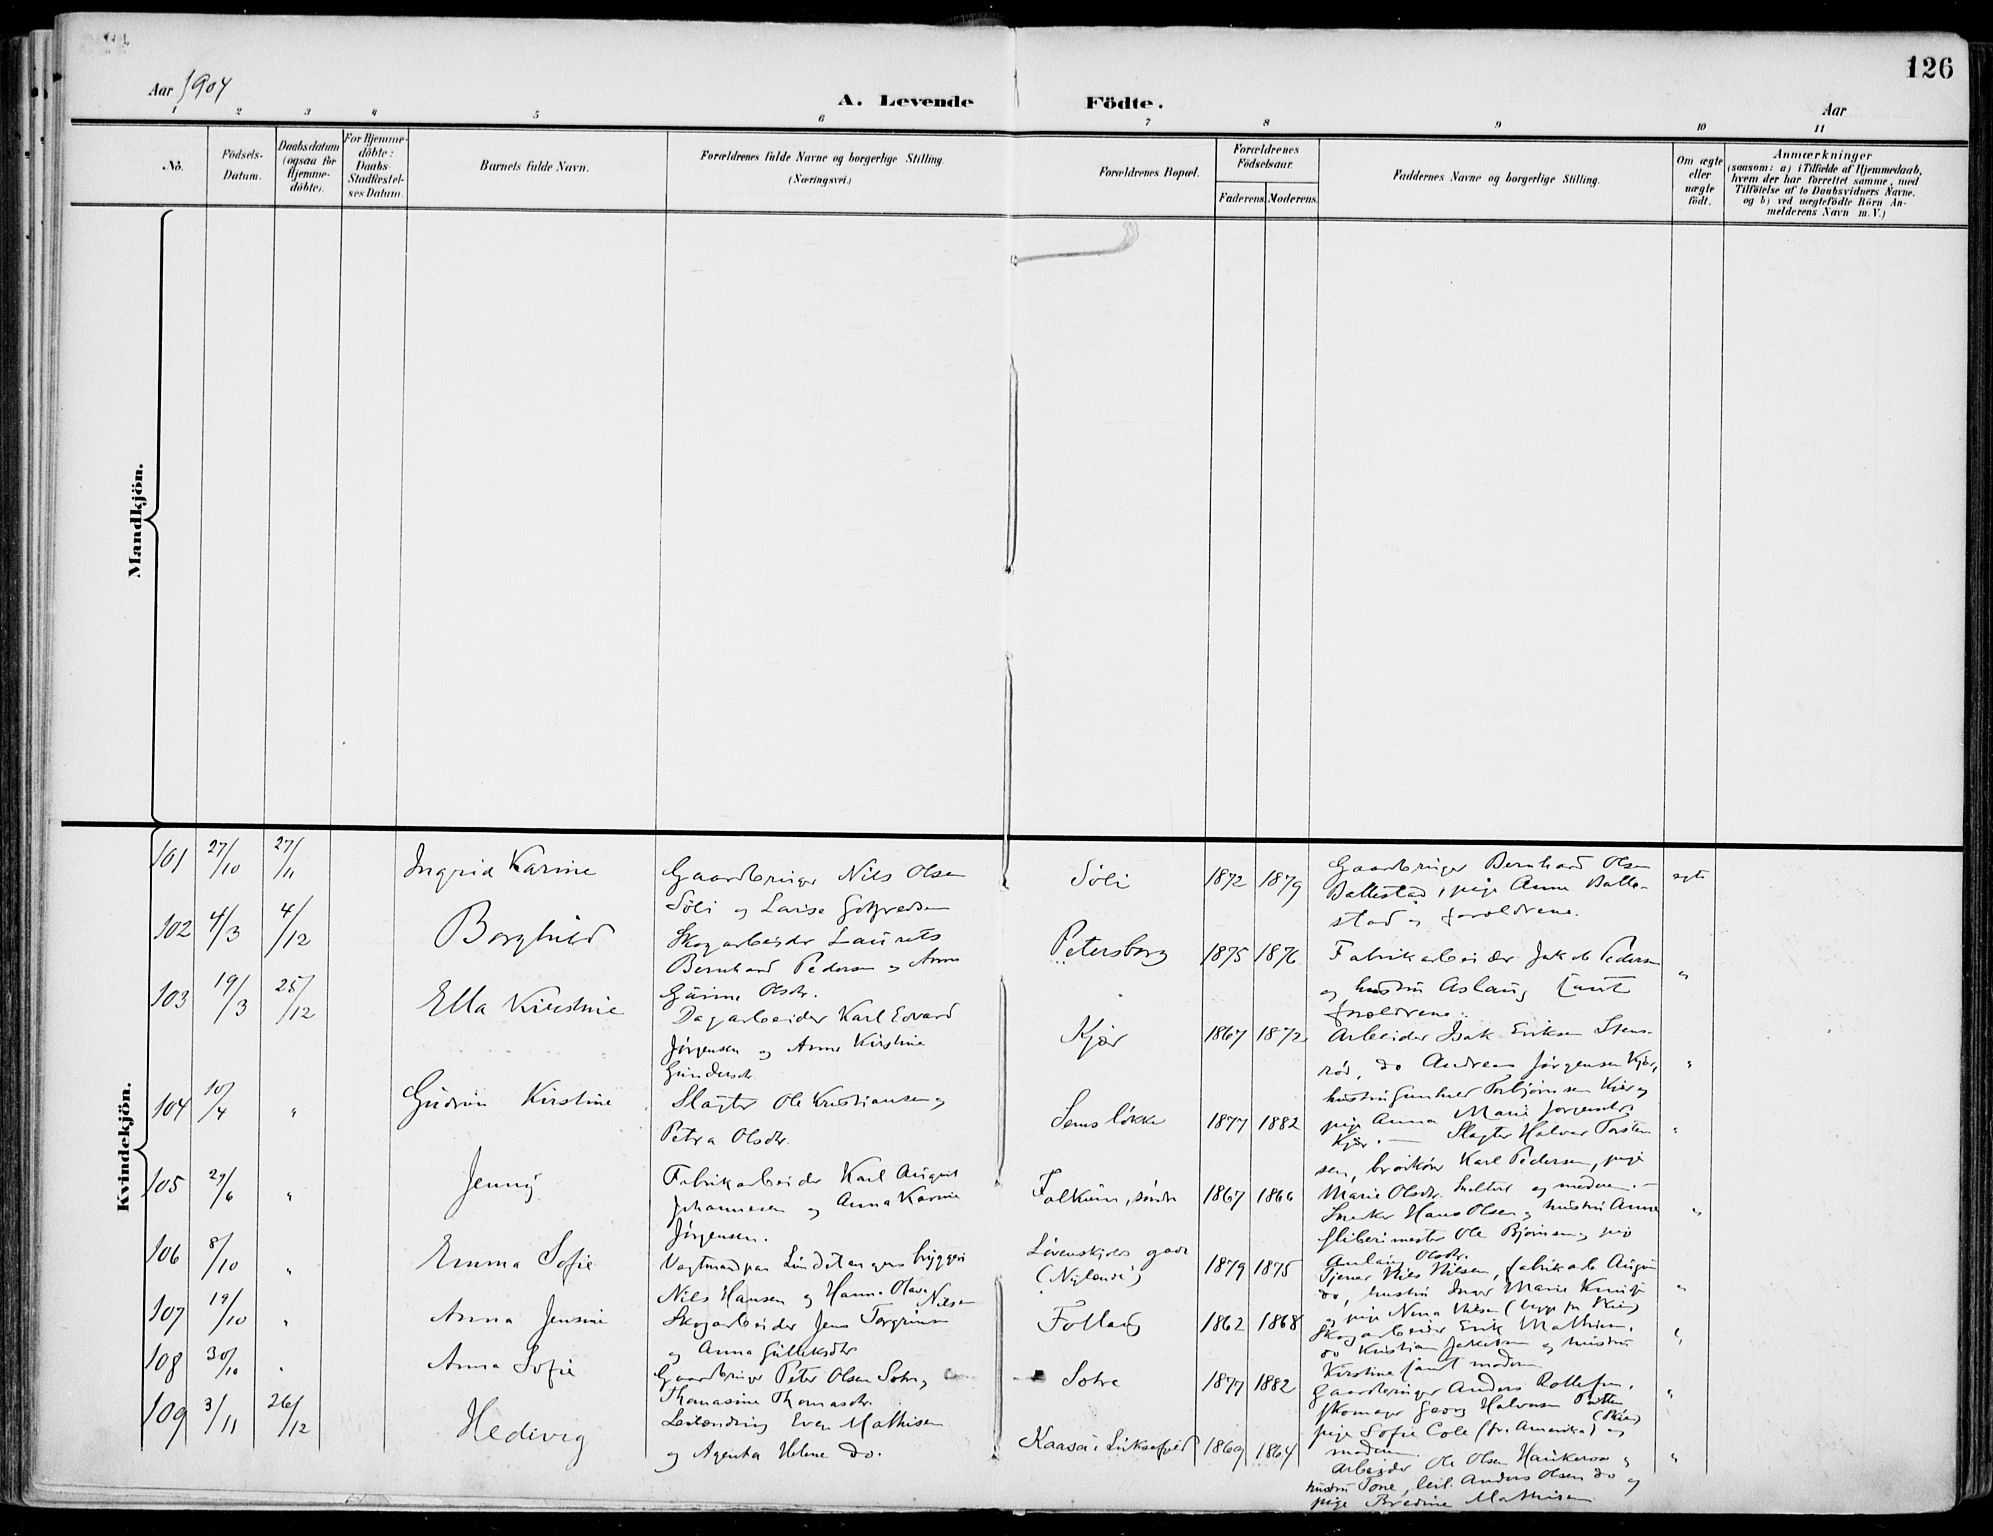 126
Aar 1904
A. Levende Födte.
Aar
1 2 3 4 5 6 7 8 9 10 11
No.
Födsels-
Datum.
Daabsdatum
(ogsaa for
Hjemme-
döbte).
For Hjemme-
döbte:
Daabs-
Stadfæstel-
ses Datum.
Barnets fulde Navn.
Forældrenes fulde Navne og borgerlige Stilling.
(Næringsvei.)
Forældrenes Bopæl.
Forældrenes
Födselsaar.
Faderens. Moderens.
Faddernes Navne og borgerlige Stilling.
Om ægte
eller
uægte
födt.
Anmærkninger
(saasom: a) i Tilfælde af Hjemmedaab,
hvem der har forrettet samme, med
Tilföielse af to Daabsvidners Navne.
og b) ved uægtefödte Börn An-
melderens Navn m. V.)
Mandkjön.
Kvindekjön.
101 27/10 27/11 Ingrid Karine
Gaardbruger Nils Olsen
Söli og Lovise
Söli 1872 1879
Gaardbruger Bernhard Olsen
Ballestad, pige Anna Balle-
stad og forældrene.
ægte
102 4/3 4/12 Borghild
Skogarbeider Laurets
Bernhard Pedersen og Anne
Gurine Olsdr.
Petersborg 1875 1876
Fabrikarbeider Jakob Pedersen
og hustru Aslaug samt
forældrene.
"
103 19/3 25/12 Ella Kirstine
Dagarbeider Karl Edvard
Jørgensen og Anne Kirstine
Gundersdr.
Kjær 1867 1872
Arbeider Isak Eriksen Stens-
rød, do Andreas Jørgensen Kjær,
hustru Gunhild Torbjørnsen Kjær og
pige Anna Marie Jørgensdr.
Kjær.
"
104 10/4 " Gudrun Kirstine
Slagter Ole Kristiansen og
Petra Olsdr.
Semsløkke 1877 1882
Slagter Halvor Torsten
sen, Karl Pedersen, pige
Marie Olsdr. og moderen.
"
105 29/6 " Jenny
Fabrikarbeider Karl August
Johannesen og Anna Karine
Jørgensen.
Falkum, søndre 1867 1866
Snekker Hans Olsen og hustru Anne
Sliberimester Ole Bjørnsen, pige
Aslaug Olsdr.
"
106 8/10 " Emma Sofie
Vogtmand paa Lundetangens bryggeri
Nils Hansen og Hanna Olava Nilsen
Løvenskjolds gade
(Nylende) 1879 1875
Tjener Nils Nilsen, fabrikarb August
do, hustru Inger Marie
og pige Nina Nilsen (begge fra Skien)
"
107 19/10 " Anna Jensine
Skogarbeider Jens Torgrimsen
og Anna Gulleksdtr
Follaug 1862 1868
Skogarbeider Erik Mathisen,
do Kristian Jakobsen og hustru
Kirstine samt moderen
"
108 30/10 " Anna Sofie
Gaardbruger Peter Olsen Solve,
Thomasine Thomasdr.
Solve 1877 1882
Gaardbruger Anders Rollefsen,
skomager Georg Halvorsen
(Skien)
pige Sofie Cole (fra Amerika) og
moderen
"
109 3/11 26/12 Hedivig
Leilænding Even Mathisen
og Agentha Helene do.
Kaasa i Luksefjeld 1869 1864
Arbeider Ole Olsen Haukeraas og
hustru Tone, leil. Anders Olsen do og
pige Bredine Mathisen
"